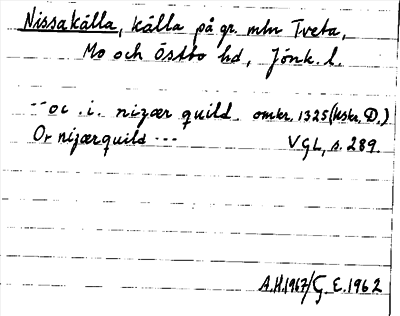 Nissakälla, källa på gr. mln Tveta,
Mo och Östbo hd, Jönk. l.
--oc .i. nizær quild. omkr. 1325 (hskr. D.)
Or nizærquild --- VGL, s. 289.
A.H.1967/G.E.1962